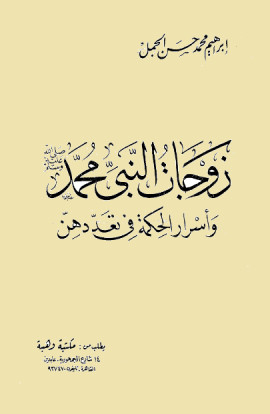 إبراهيم محمد حسن الجمل
زوجات النبي محمد ﷺ
وأسرار الحكمة في تعددهن
يطلب من: مكتبة وهبة
١٤ شارع الجمهورية. عابدين
القاهرة. تليفون ٩٣٧٤٧٠